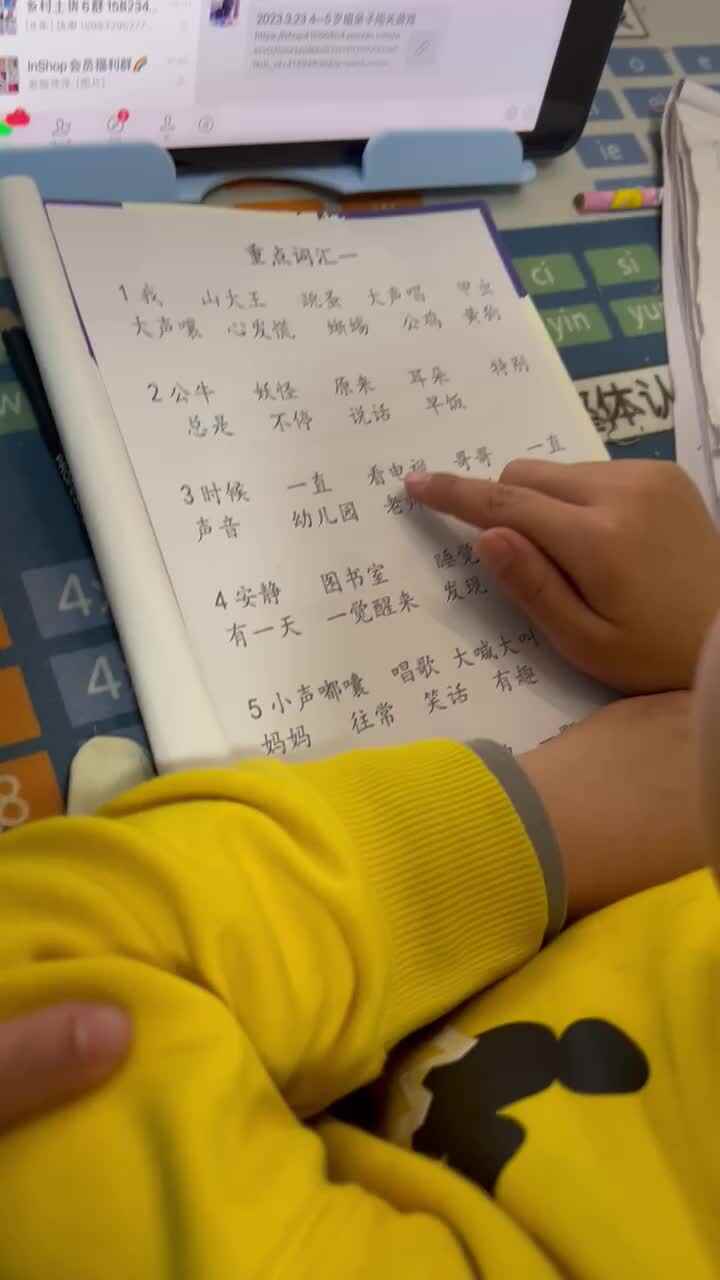 InShop会员福利群🌈
2023.3.23 4-5岁组亲子闯关游戏
ie
ci
si
yin
yu
体认
重点词汇一
1 我 山大王 跳蚤 大声唱 甲虫
大声嚷 心发慌 蜥蜴 公鸡 黄狗
2 公牛 妖怪 原来 耳朵 特别
总是 不停 说话 早饭
3 时候 一直 看电视 哥哥 一直
声音 幼儿园
4 安静 图书室 睡觉
有一天 一觉醒来 发现
5 小声嘟囔 唱歌 大喊大叫
妈妈 往常 笑话 有趣
4
4
8